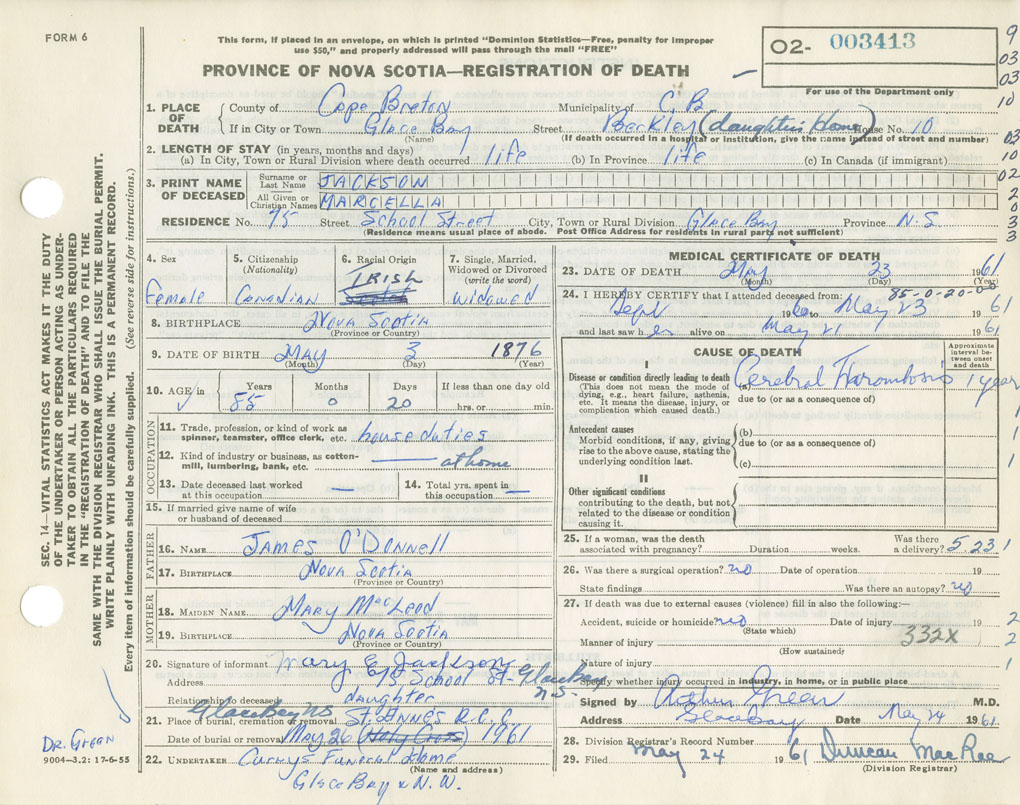 FORM 6
This form, if placed in an envelope, on which is printed "Dominion Statistics—Free, penalty for improper
use $50," and properly addressed will pass through the mail "FREE"
PROVINCE OF NOVA SCOTIA—REGISTRATION OF DEATH
O2- 003413
For use of the Department only
9
03
03
10
03
10
02
2
0
3
3
1. PLACE OF DEATH County of Cape Breton Municipality of C.B.
If in City or Town Glace Bay Street Beckley (daughter's home) House No. 10
(Name) (If death occurred in a hospital or institution, give the name instead of street and number)
2. LENGTH OF STAY (in years, months and days)
(a) In City, Town or Rural Division where death occurred life (b) In Province life (c) In Canada (if immigrant)
3. PRINT NAME OF DECEASED Surname or Last Name JACKSON
All Given or Christian Names MARCELLA
RESIDENCE No. 75 Street School Street City, Town or Rural Division Glace Bay Province N.S.
(Residence means usual place of abode. Post Office Address for residents in rural parts not sufficient)
4. Sex Female
5. Citizenship (Nationality) Canadian
6. Racial Origin IRISH
7. Single, Married, Widowed or Divorced (write the word) Widowed
8. BIRTHPLACE Nova Scotia
(Province or Country)
9. DATE OF BIRTH MAY 3 1876
(Month) (Day) (Year)
10. AGE in Years Months Days If less than one day old
85 0 20 hrs. or min.
OCCUPATION
11. Trade, profession, or kind of work as spinner, teamster, office clerk, etc. house duties
12. Kind of industry or business, as cotton-mill, lumbering, bank, etc. — at home
13. Date deceased last worked at this occupation —
14. Total yrs. spent in this occupation —
15. If married give name of wife or husband of deceased
FATHER
16. NAME JAMES O'Donnell
17. BIRTHPLACE Nova Scotia
(Province or Country)
MOTHER
18. MAIDEN NAME Mary MacLeod
19. BIRTHPLACE Nova Scotia
(Province or Country)
20. Signature of informant Mary E Jackson
Address 75 School St - Glace Bay N.S.
Relationship to deceased daughter
21. Place of burial, cremation or removal Glace Bay N.S. St. Annes R.C.C.
Date of burial or removal May 26 (Holy Cross) 1961
22. UNDERTAKER Curry's Funeral Home
(Name and address)
Glace Bay & N.W.
MEDICAL CERTIFICATE OF DEATH
23. DATE OF DEATH May 23 1961
(Month) (Day) (Year)
85-0-20-00
24. I HEREBY CERTIFY that I attended deceased from:
Sept 1960 to May 23 1961
and last saw her alive on May 21 1961
CAUSE OF DEATH
Approximate interval between onset and death
I
Disease or condition directly leading to death (a) Cerebral Thrombosis 1 year
(This does not mean the mode of dying, e.g., heart failure, asthenia, etc. It means the disease, injury, or complication which caused death.) due to (or as a consequence of)
Antecedent causes (b)
Morbid conditions, if any, giving rise to the above cause, stating the underlying condition last. due to (or as a consequence of)
(c)
1
1
1
II
Other significant conditions
contributing to the death, but not related to the disease or condition causing it.
25. If a woman, was the death associated with pregnancy? Duration weeks. Was there a delivery? 5.23 1
26. Was there a surgical operation? no Date of operation 19
State findings Was there an autopsy? no
27. If death was due to external causes (violence) fill in also the following:—
Accident, suicide or homicide no Date of injury 19 2
(State which)
332X
Manner of injury 2
(How sustained)
Nature of injury 1
Specify whether injury occurred in industry, in home, or in public place
Signed by Arthur Green M.D.
Address Glace Bay Date May 24 1961.
28. Division Registrar's Record Number
29. Filed May 24 1961 Duncan MacRae
(Division Registrar)
SEC. 14—VITAL STATISTICS ACT MAKES IT THE DUTY
OF THE UNDERTAKER OR PERSON ACTING AS UNDER-
TAKER TO OBTAIN ALL THE PARTICULARS REQUIRED
IN THE "REGISTRATION OF DEATH" AND TO FILE THE
SAME WITH THE DIVISION REGISTRAR WHO SHALL ISSUE THE BURIAL PERMIT.
WRITE PLAINLY WITH UNFADING INK. THIS IS A PERMANENT RECORD.
Every item of information should be carefully supplied. (See reverse side for instructions.)
DR. GREEN
9004—3.2: 17-6-55